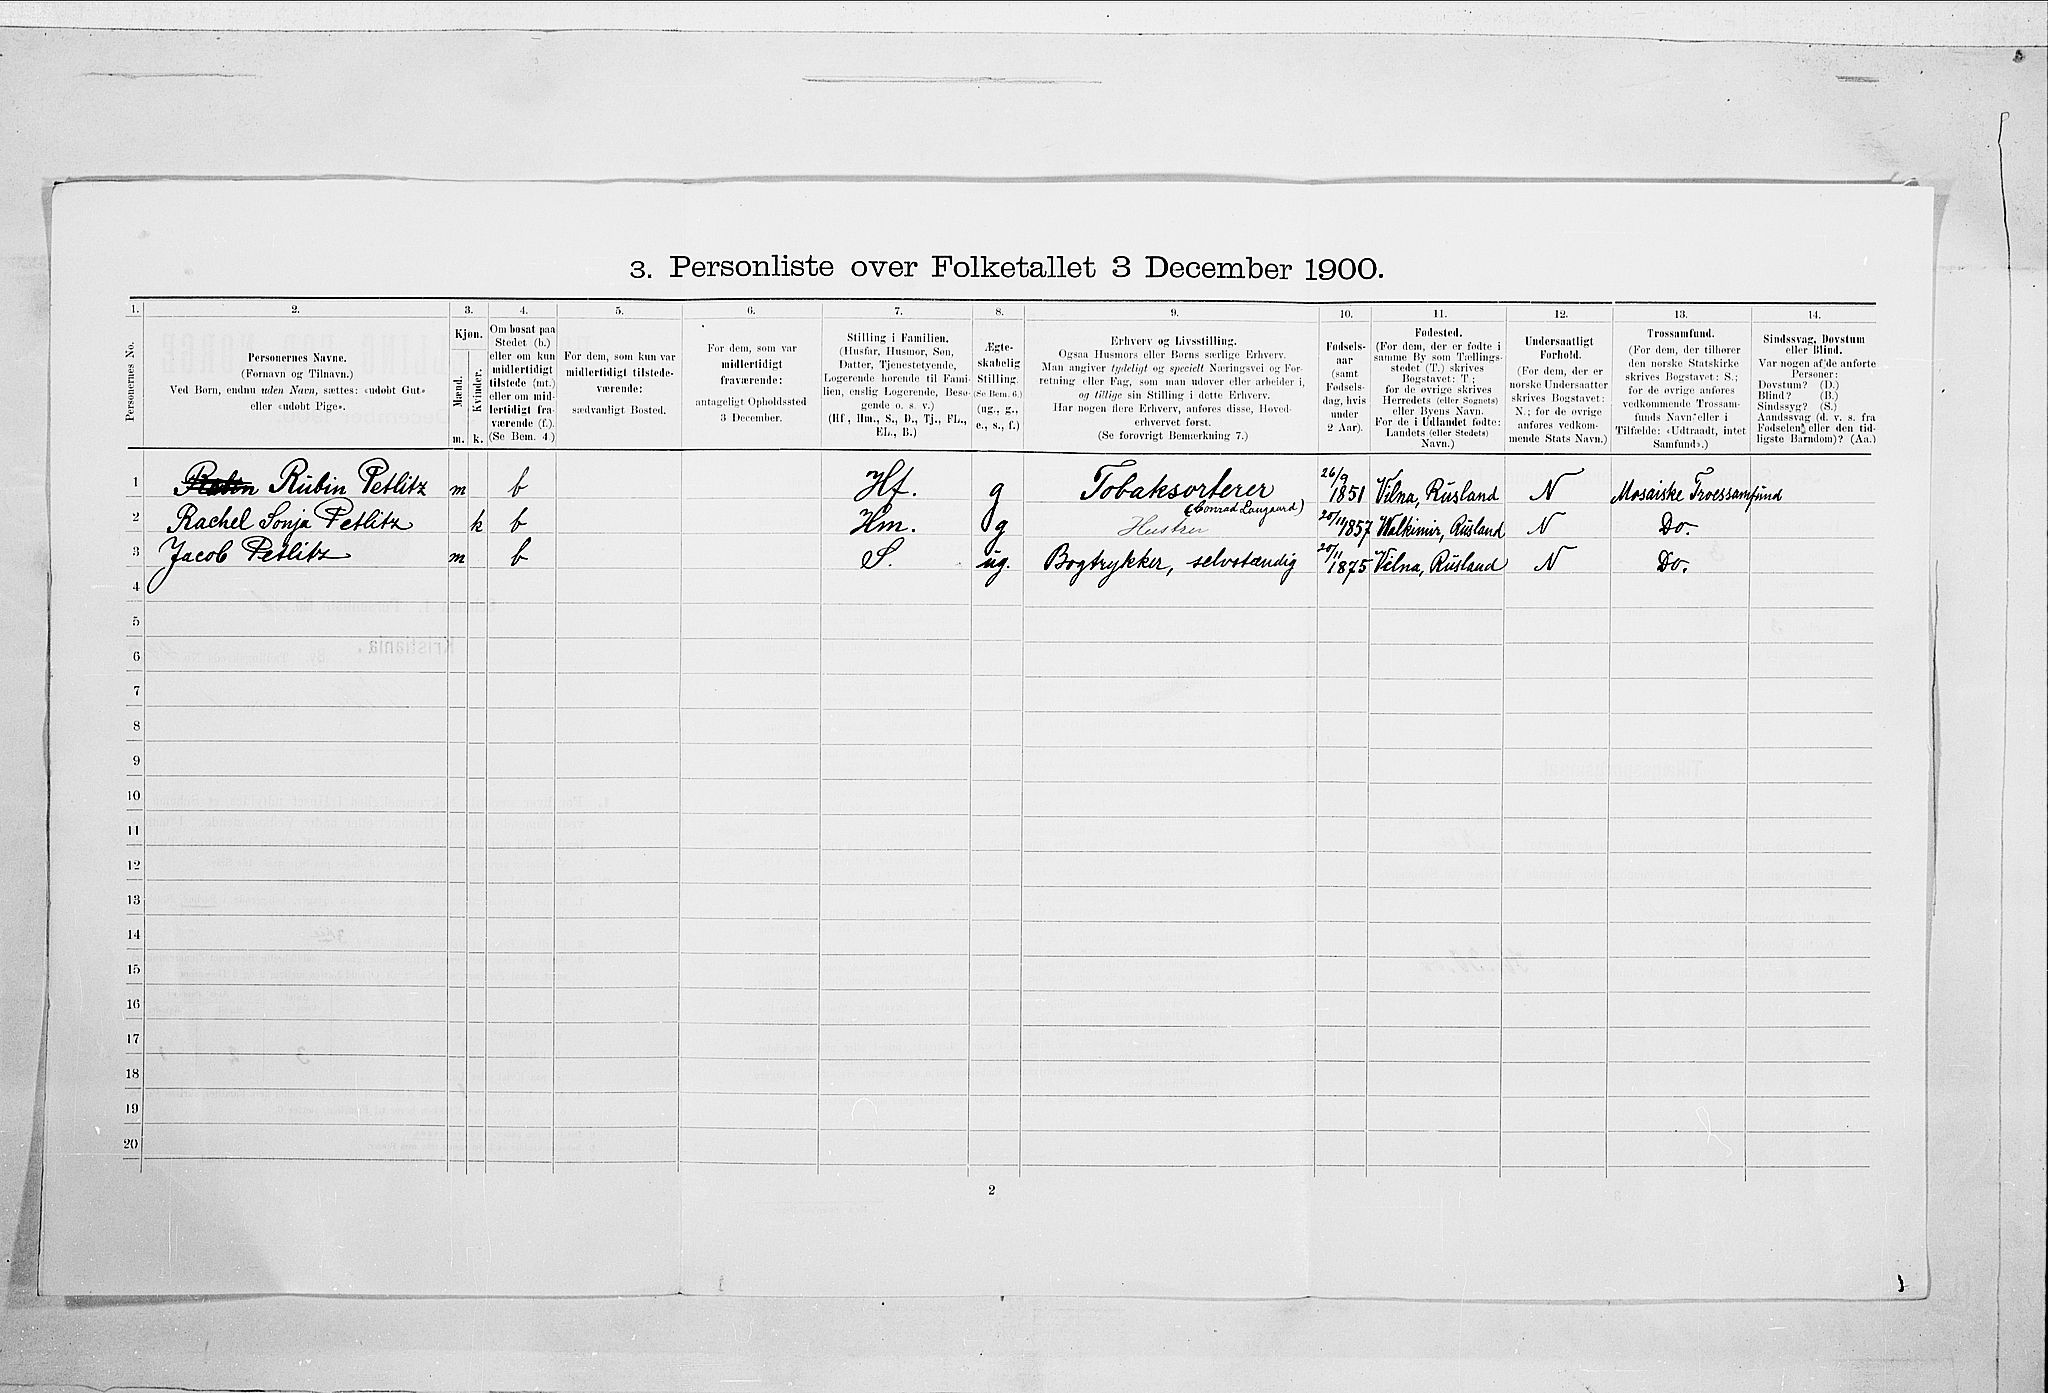 3. Personliste over Folketallet 3 December 1900.
1. 2. 3. 4. 5. 6. 7. 8. 9. 10. 11. 12. 13. 14.
Personernes No.
Personernes Navne.
(Fornavn og Tilnavn.)
Ved Børn, endnu uden Navn, sættes: «udøbt Gut»
eller «udøbt Pige».
Kjøn.
Mænd.
Kvinder.
m. k.
Om bosat paa
Stedet (b.)
eller om kun
midlertidigt
tilstede (mt.)
eller om mid-
lertidigt fra-
værende (f.).
(Se Bem. 4.)
For dem, som kun var
midlertidigt tilstede-
værende:
sædvanligt Bosted.
For dem, som var
midlertidigt
fraværende:
antageligt Opholdssted
3 December.
Stilling i Familien.
(Husfar, Husmor, Søn,
Datter, Tjenestetyende,
Logerende hørende til Fami-
lien, enslig Logerende, Besø-
gende o. s. v.)
(Hf., Hm., S., D., Tj., FL.,
EL., B.)
Ægte-
skabelig
Stilling.
(Se Bem. 6.)
(ug., g.,
e., s., f.)
Erhverv og Livsstilling.
Ogsaa Husmors eller Børns særlige Erhverv.
Man angiver tydeligt og specielt Næringsvei og For-
retning eller Fag, som man udøver eller arbeider i,
og tillige sin Stilling i dette Erhverv.
Har nogen flere Erhverv, anføres disse, Hoved-
erhvervet først.
(Se forøvrigt Bemærkning 7.)
Fødsels-
aar
(samt
Fødsels-
dag, hvis
under
2 Aar).
Fødested.
(For dem, der er fødte i
samme By som Tællings-
stedet (T.) skrives
Bogstavet: T;
for de øvrige skrives
Herredets (eller Sognets)
eller Byens Navn.
For de i Udlandet fødte:
Landets (eller Stedets)
Navn.)
Undersaatligt
Forhold.
(For dem, der er
norske Undersaatter
skrives Bogstavet:
N.; for de øvrige
anføres vedkom-
mende Stats Navn.)
Trossamfund.
(For dem, der tilhører
den norske Statskirke
skrives Bogstavet: S.;
for de øvrige anføres
vedkommende Trossam-
funds Navn eller i
Tilfælde: «Udtraadt, intet
Samfund».)
Sindssvag, Døvstum
eller Blind.
Var nogen af de anførte
Personer:
Døvstum? (D.)
Blind? (B.)
Sindssyg? (S.)
Aandssvag (d. v. s. fra
Fødselen eller den tid-
ligste Barndom)? (Aa.)
1 Rubin Petlitz m b Hf. g Tobaksorterer (Conrad Langaard) 26/9 1851 Vilna, Rusland N Mosaiske Troessamfund
2 Rachel Sonja Petlitz k b Hm. g Hustru 20/11 1857 Walkimir, Rusland N Do.
3 Jacob Petlitz m b S. ug. Bogtrykker, selvstændig 20/11 1875 Vilna, Rusland N Do.
4
5
6
7
8
9
10
11
12
13
14
15
16
17
18
19
20
2